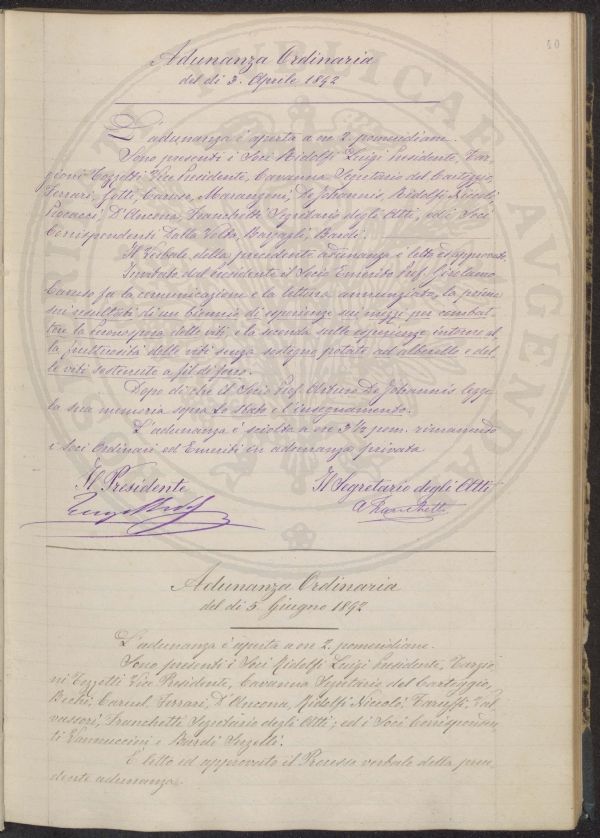 40
Adunanza Ordinaria
del dì 3. Aprile 1892
L'adunanza è aperta a ore 2. pomeridiane.
Sono presenti i Soci Ridolfi Luigi Presidente, Tar-
gioni Tozzetti Vice Presidente, Cavanna Segretario del Carteggio,
Ferrari, Caruso, Marangoni, De Johannis, Ridolfi Niccolò,
Pucacci, D'Ancona, Franchetti Segretario degli Atti, ed i Soci
Corrispondenti Dalla Volta, Bargagli, Bardi.
Il Verbale della precedente adunanza è letto ed approvato
Invitato dal Presidente il Socio Emerito Prof. Girolamo
Caruso fa la comunicazione e la lettura annunziata, la prima
sui resultati di un biennio di esperienze sui mezzi per combat-
tere la Peronospora delle viti, e la seconda sulle esperienze intorno al
la fruttuosità delle viti senza sostegno potate ad alberello e del
le viti sostenute a fil di ferro.
Dopo di che il Socio Prof. Arturo De Johannis legge
la sua memoria sopra Lo Stato e l'insegnamento.
L'adunanza è sciolta a ore 3½ pom. rimanendo
i Soci Ordinari ed Emeriti in adunanza privata
Il Presidente Il Segretario degli Atti
A Franchetti
Adunanza Ordinaria
del dì 5. Giugno 1892
L'adunanza è aperta a ore 2. pomeridiane.
Sono presenti i Soci Ridolfi Luigi Presidente, Targio
ni Tozzetti Vice Presidente, Cavanna Segretario del Carteggio,
Bechi, Caruel, Ferrari, D'Ancona, Ridolfi Niccolò, Taruffi, Val
vassori, Franchetti Segretario degli Atti; ed i Soci Corrisponden
ti Vannuccini e Bardi
È letto ed approvato il Processo verbale della prece
dente adunanza.